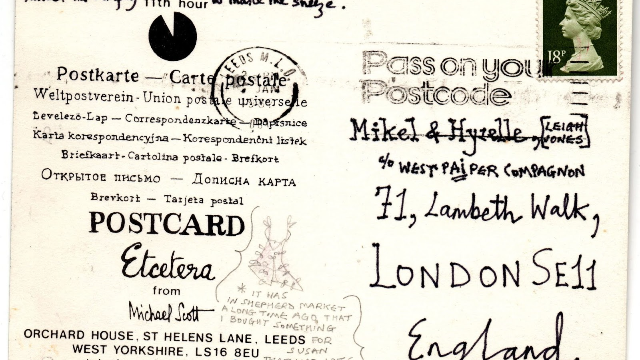 11th hour to make the sneeze.
Postkarte — Carte postale
Weltpostverein - Union postale universelle
Levelező-Lap — Correspondenzkarte — Dopisnice
Karta korespondencyjna — Korespondenční lístek
Briefkaart - Cartolina postale - Brefkort
Открытое письмо — Дописна карта
Brevkort — Tarjeta postal
POSTCARD
Etcetera
from
Michael Scott
ORCHARD HOUSE, ST HELENS LANE, LEEDS
WEST YORKSHIRE, LS16 8EU
* IT HAS
IN SHEPHERD MARKET
A LONG TIME AGO, THAT
I BOUGHT SOMETHING
FOR
SUSAN
LEEDS M.L.O.
JAN
Pass on your
Postcode
18P
Mikel & Hyzelle, [LEIGH JONES]
c/o WEST PAIPER COMPAGNON
71, Lambeth Walk,
LONDON SE11
England.